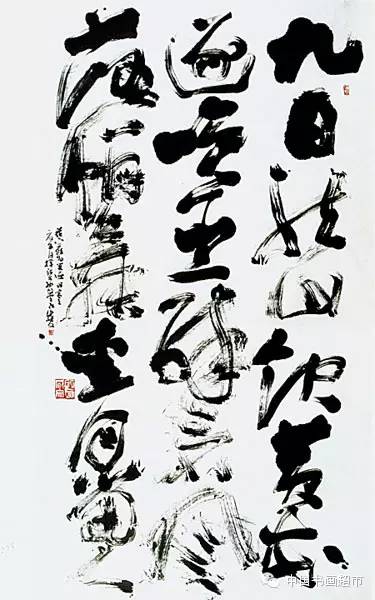 九日龍山飲黃花
笑逐臣醉看風
落帽舞愛月留人
中国书画超市